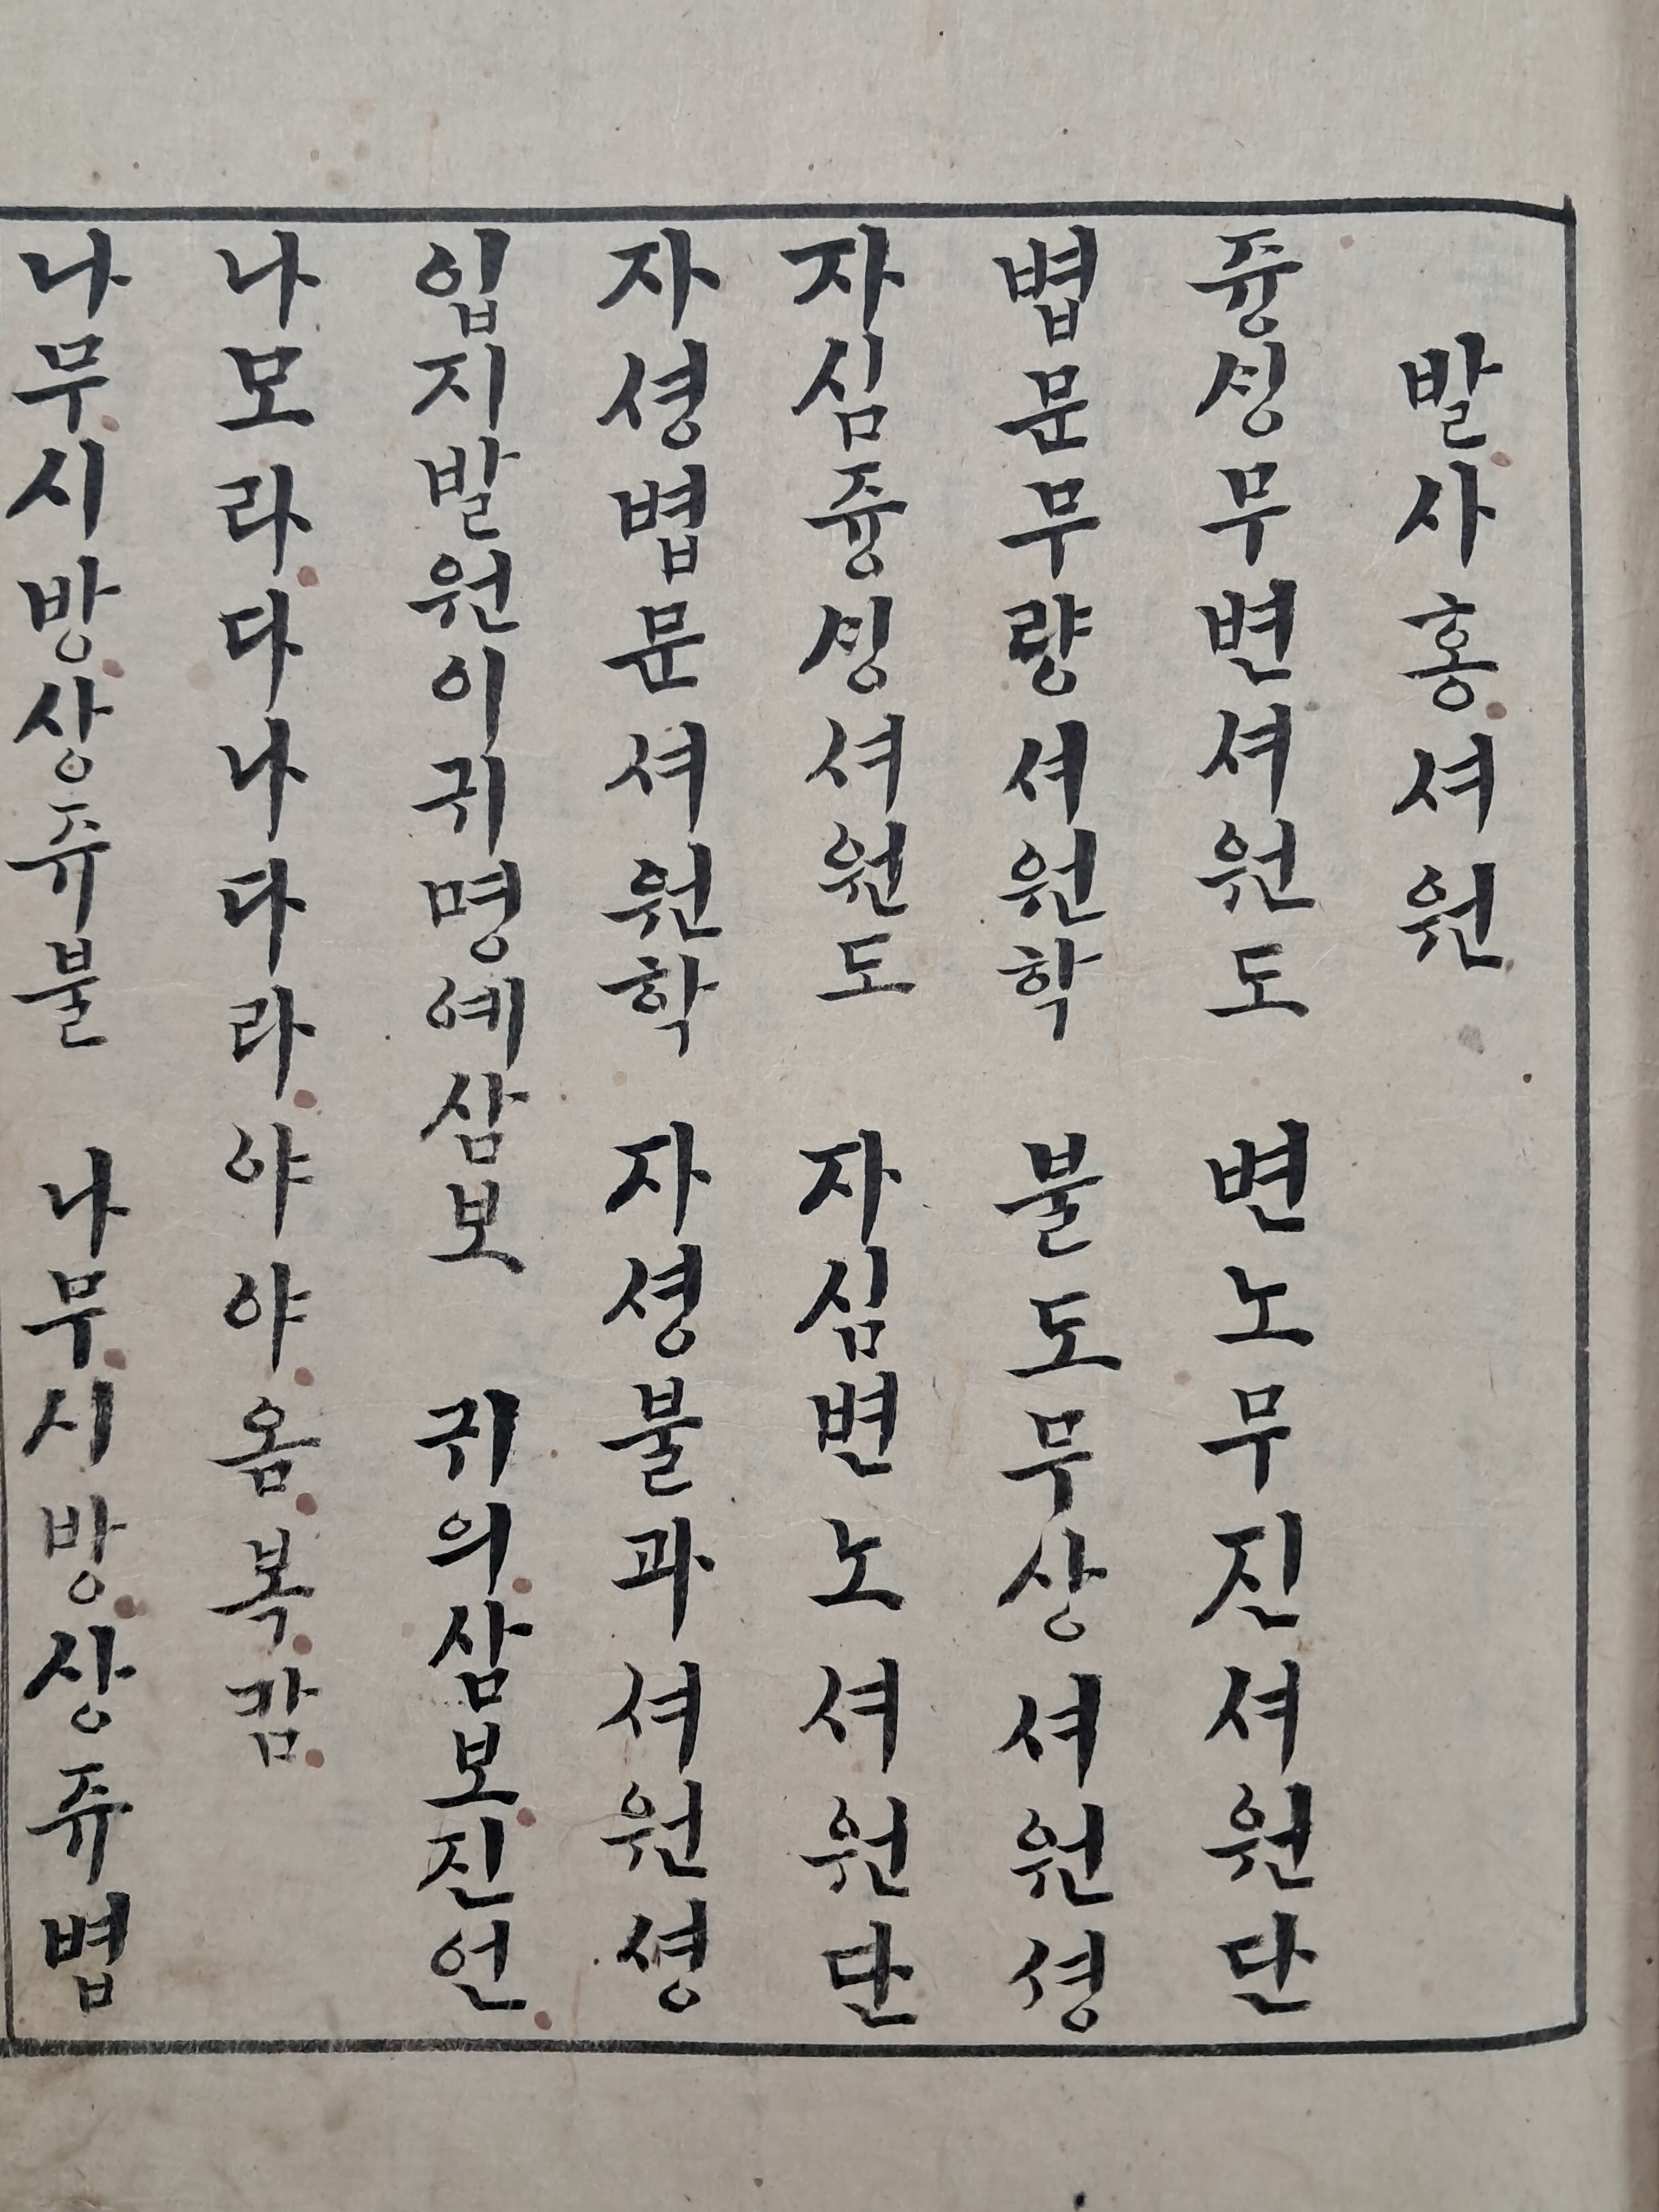 발사홍셔원
즁싱무변셔원도 변노무진셔원단
볍문무량셔원학 불도무상셔원셩
자심즁싱셔원도 자심변노셔원단
자셩볍문셔원학 자셩불과셔원셩
입지발원이귀명예삼보 귀의삼보진언
나모라다나다라야야옴복감
나무시방상쥬불 나무시방상쥬볍